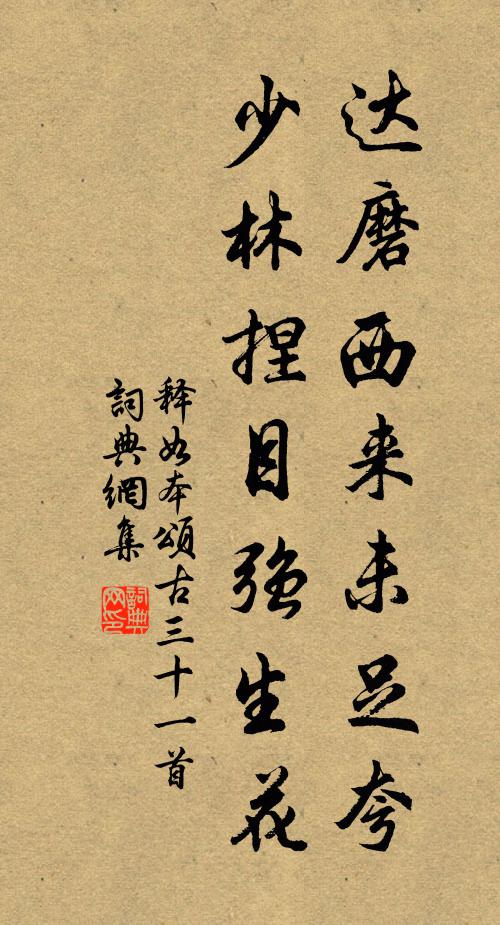 达磨西来未足夸
少林捏目强生花
释如本頌古三十一首
詞典網集
詞典网印